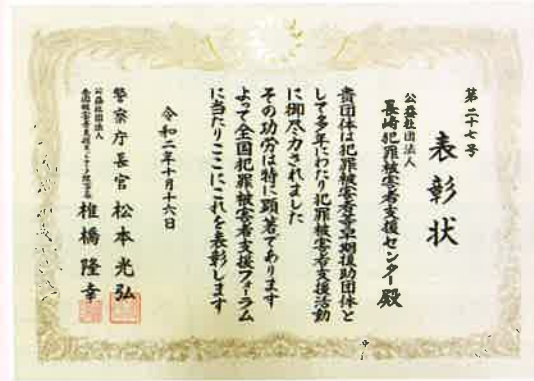 第二十七号
表彰状
公益社団法人
長崎犯罪被害者支援センター殿
貴団体は犯罪被害者等早期援助団体と
して多年にわたり犯罪被害者支援活動
に御尽力されました
その功労は特に顕著であります
よって全国犯罪被害者支援フォーラム
に当たりここにこれを表彰します
令和二年十月十六日
警察庁長官 松本光弘
公益社団法人
全国被害者支援ネットワーク理事長 椎橋隆幸